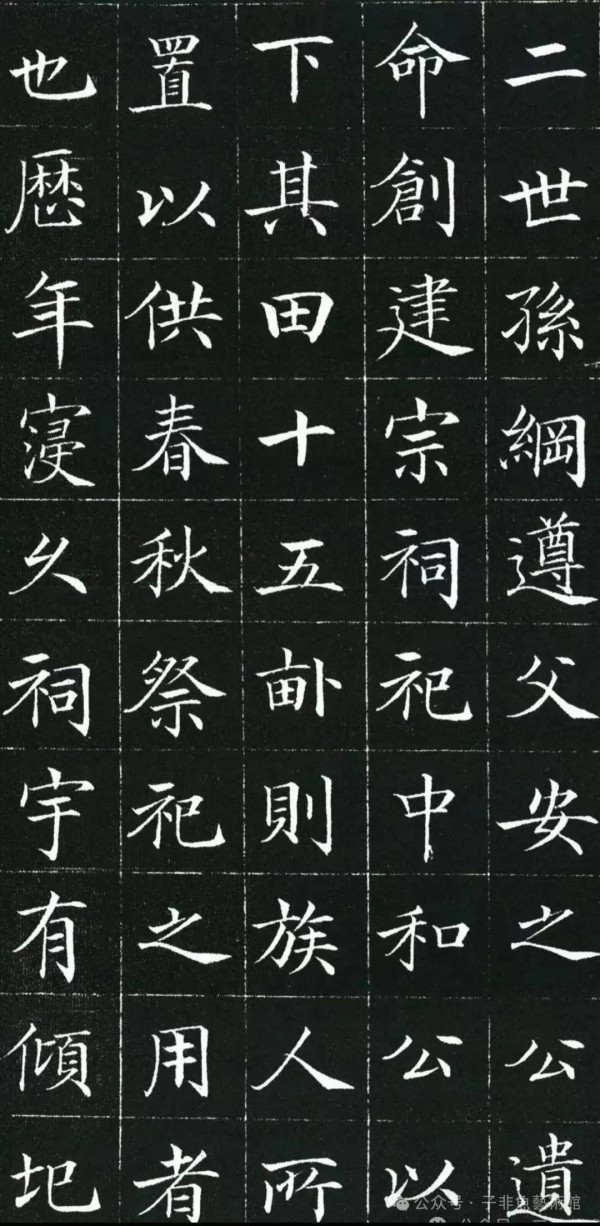 二世孫綱遵父安之公遺
命創建宗祠祀中和公以
下其田十五畝則族人所
置以供春秋祭祀之用者
也歷年寖久祠宇有傾圯
公众号·子非魚藝術館